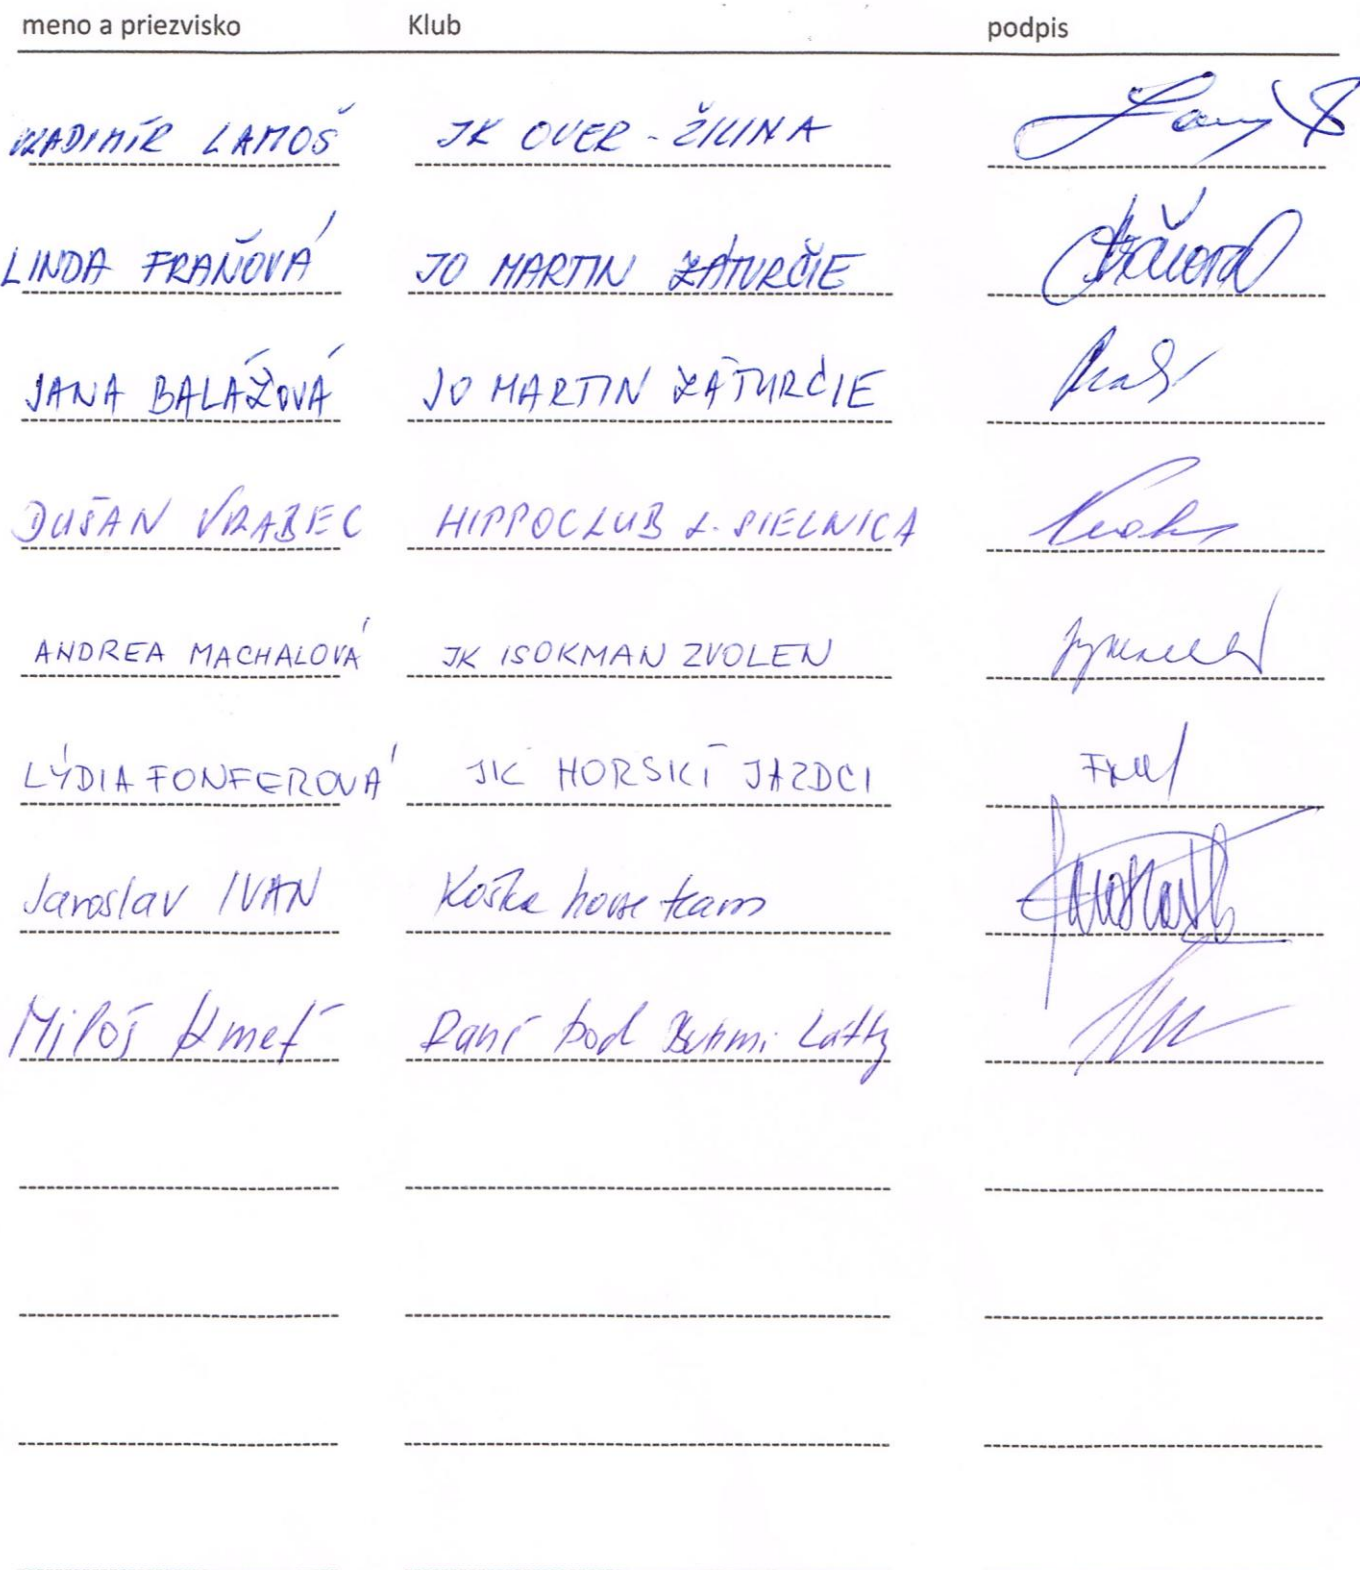 meno a priezvisko Klub podpis
VLADIMÍR LAMOŠ JK OVER - ŽILINA
LINDA FRAŇOVÁ JO MARTIN ZÁTURČIE
JANA BALÁŽOVÁ JO MARTIN ZÁTURČIE
DUŠAN VRABEC HIPPOCLUB L. SIELNICA
ANDREA MACHALOVÁ JK ISOKMAN ZVOLEN
LÝDIA FONFEROVÁ JK HORSKÍ JAZDCI
Jaroslav IVAN Koška horse team
Miloš Kmeť Ranč pod